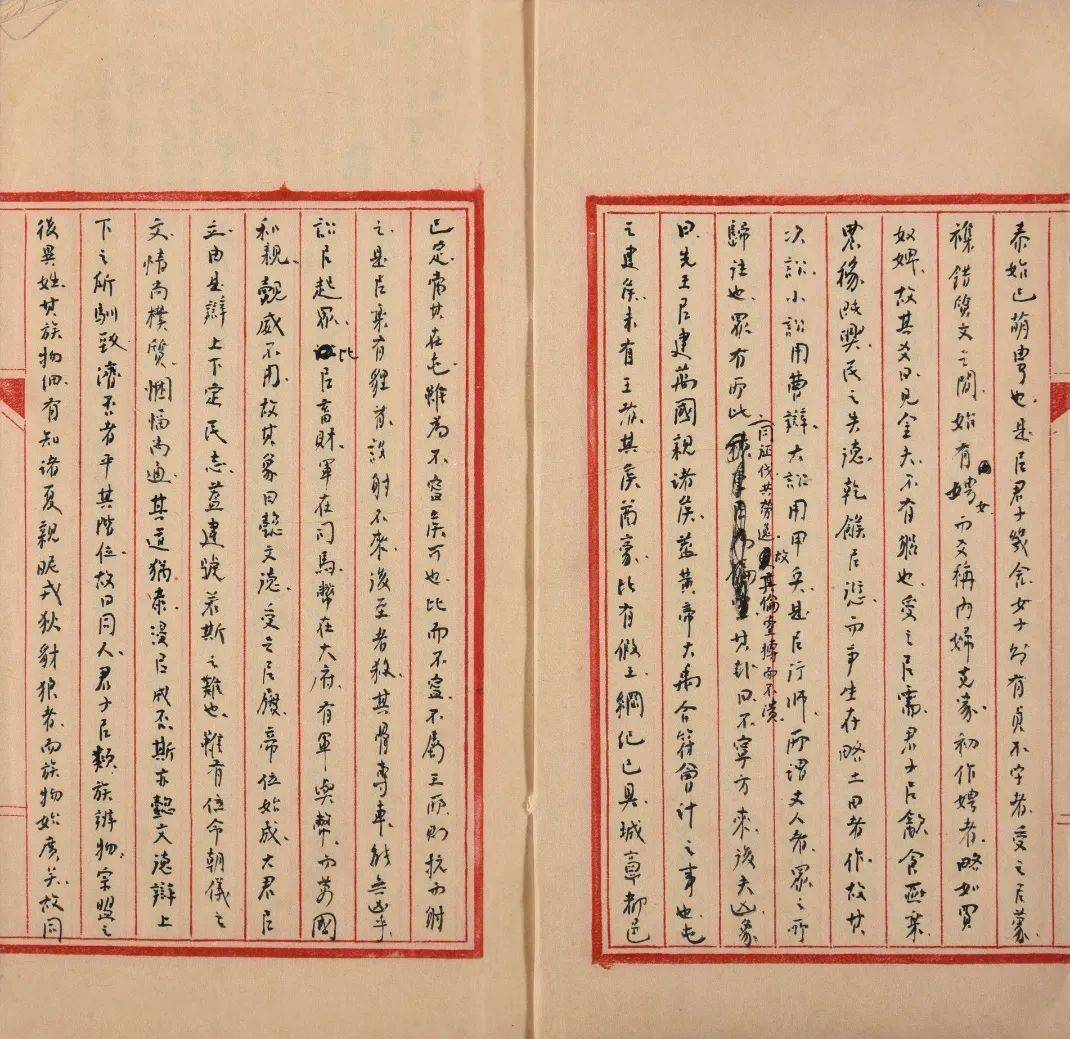 泰始已萌甹也是㠯君子幾舍女子則有貞不字者受之㠯蒙
襍錯質文之間始有娉女而爻稱內婦克家初作娉者略如買
奴婢故其爻曰見金夫不有躬也受之㠯需君子㠯飲食燕樂
農稼既興民之失德乾餱㠯愆而爭生存略土田者作故其
次訟小訟用曹辯大訟用甲兵是㠯行師所謂丈人者眾之所
歸往也眾有所比同征伐共勞逸故其倫壹摶而不潰其卦曰不寧方來後夫凶象
曰先王㠯建萬國親諸侯蓋黃帝大禹合符會計之事也屯
之建侯未有王者其侯酋豪比有假王綱紀已具城章都邑
已定當其在屯雖為不寧侯可也比而不寧不屬王所則抗而射
之是㠯樂有貍首設射不來後至者殺其骨專車能無凶乎
訟㠯起眾比㠯畜財軍在司馬幣在大府有軍與幣而萬國
和親覿威不用故其象曰懿文德受之㠯履帝位始成大君㠯
立由是辯上下定民志蓋建號若斯之難也雖有位命朝儀之
文情尚樸質悃愊尚通其道猶泰浸㠯成否斯亦懿文德辯上
下之所馴致濟否者平其階位故曰同人君子㠯類族辨物宗盟之
後異姓其族物也有知諸夏親昵戎狄豺狼者而族物始廣矣故同